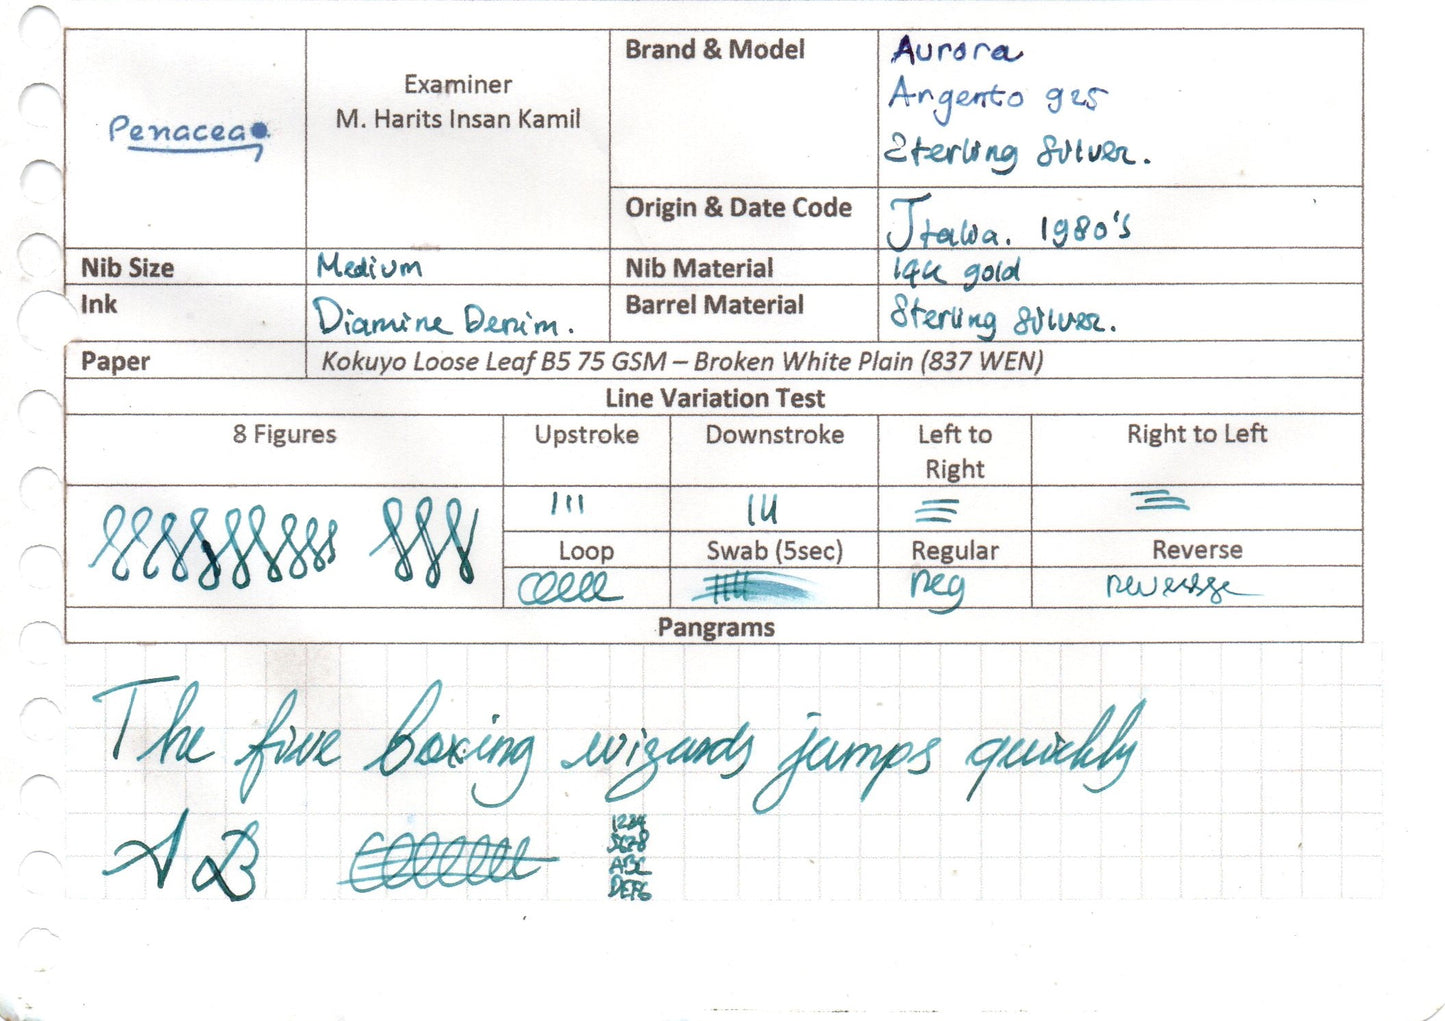 Penacea
Examiner
M. Harits Insan Kamil
Brand & Model
Aurora
Argento 925
Sterling Silver.
Origin & Date Code
Italia. 1980's
Nib Size
Medium
Nib Material
14k gold
Ink
Diamine Denim.
Barrel Material
Sterling Silver.
Paper
Kokuyo Loose Leaf B5 75 GSM – Broken White Plain (837 WEN)
Line Variation Test
8 Figures
Upstroke
Downstroke
Left to
Right
Right to Left
Loop
Swab (5sec)
Regular
Reverse
reg
reversge
Pangrams
The five boxing wizards jumps quickly
A B
1234
5678
ABC
DEFG